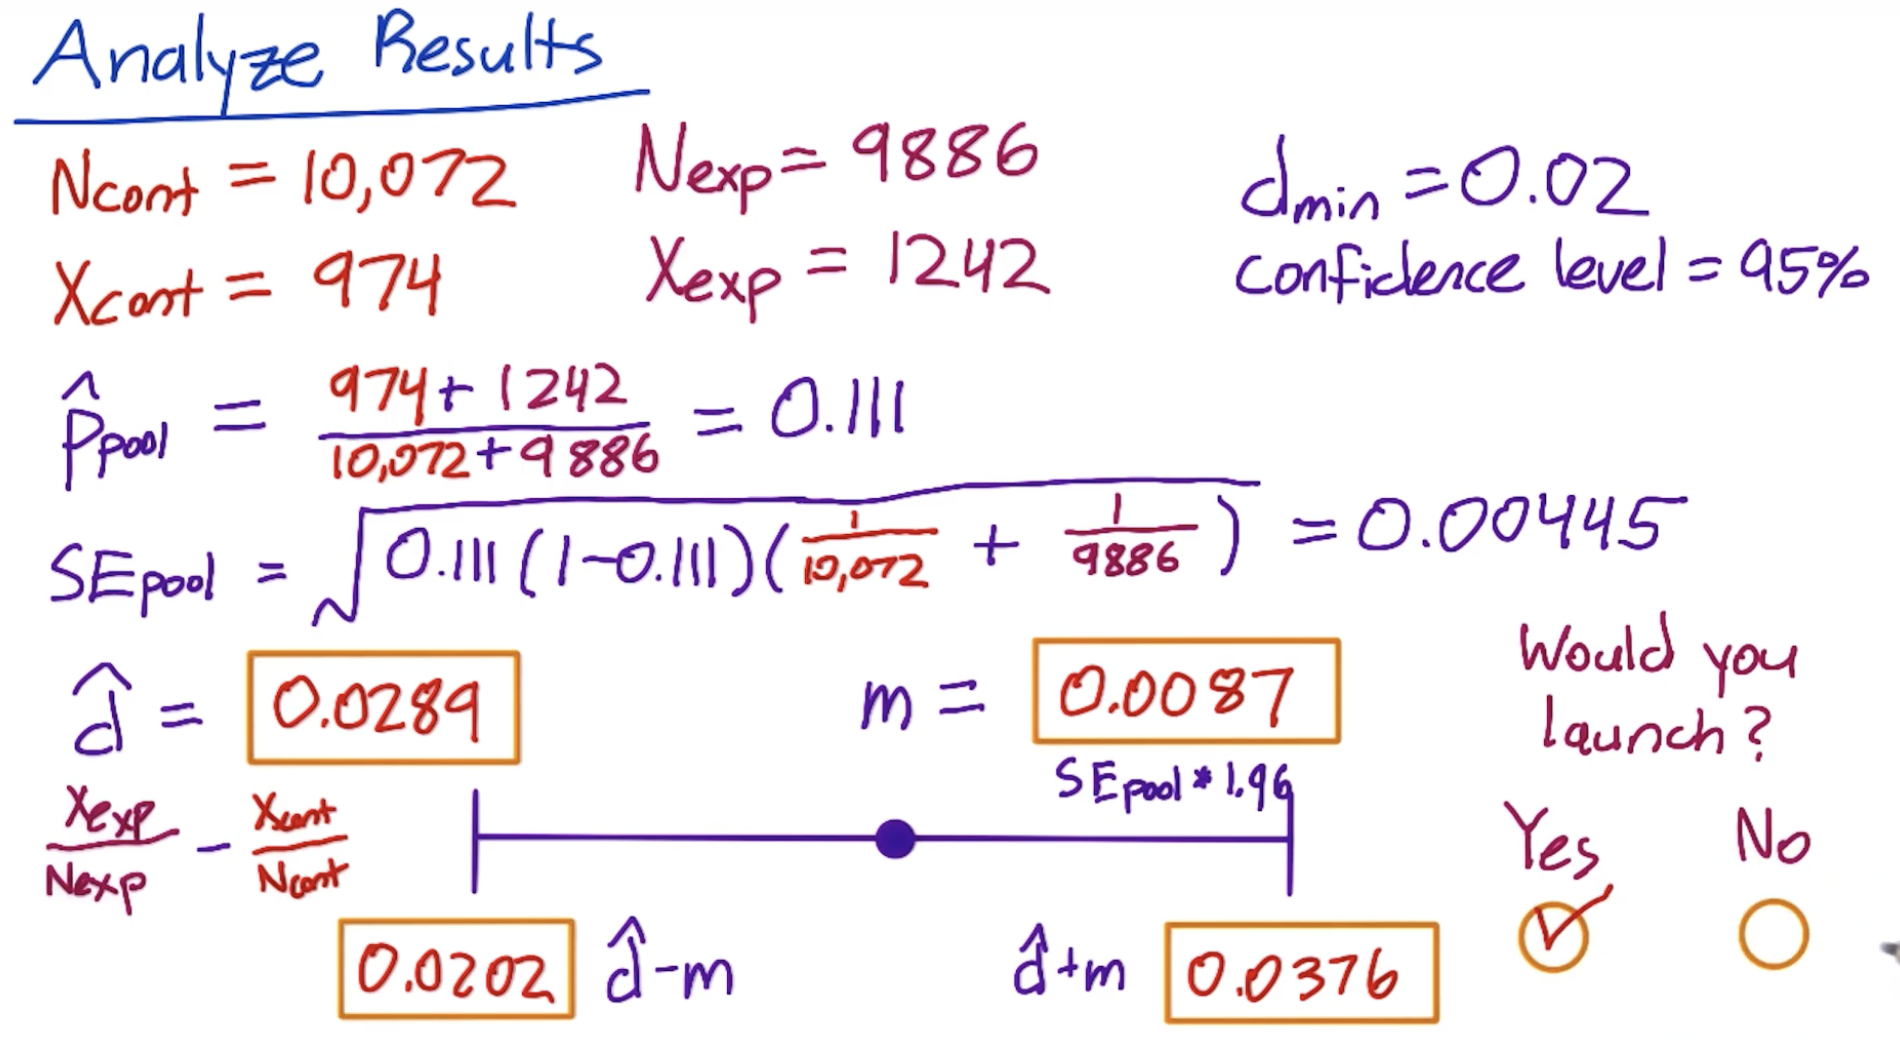 Analyze Results
Ncont = 10,072
Xcont = 974
Nexp = 9886
Xexp = 1242
dmin = 0.02
confidence level = 95%
p̂pool = (974 + 1242)/(10,072 + 9886) = 0.111
SEpool = √(0.111(1-0.111)(1/10,072 + 1/9886)) = 0.00445
d̂ = 0.0289
Xexp/Nexp - Xcont/Ncont
m = 0.0087
SEpool * 1.96
0.0202 d̂-m
d̂+m 0.0376
Would you
launch?
Yes No